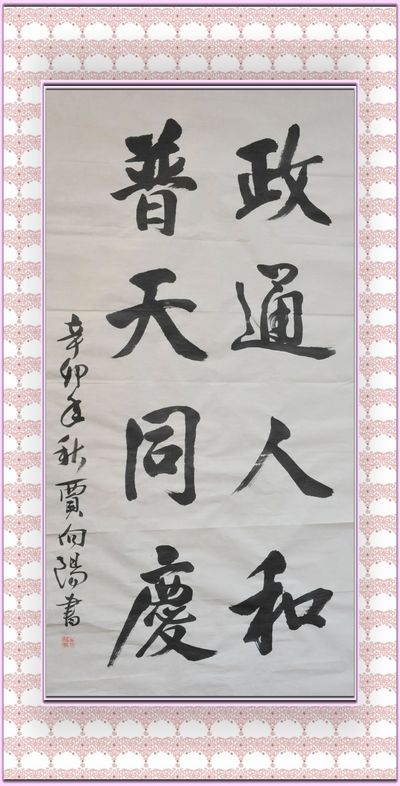 政通人和
普天同慶
辛卯年秋賈向陽書